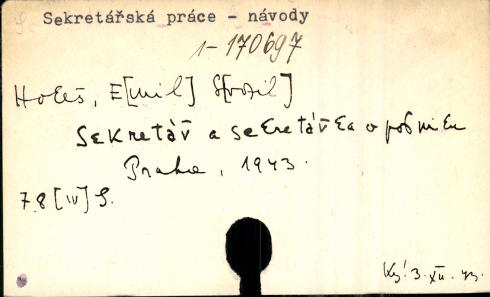 Sekretářská práce - návody
1-170697
Holeš, E[mil] S[vožil]
Sekretář a sekretářka v podniku
Praha, 1943.
78 [IV] S.
3. XII. 43.